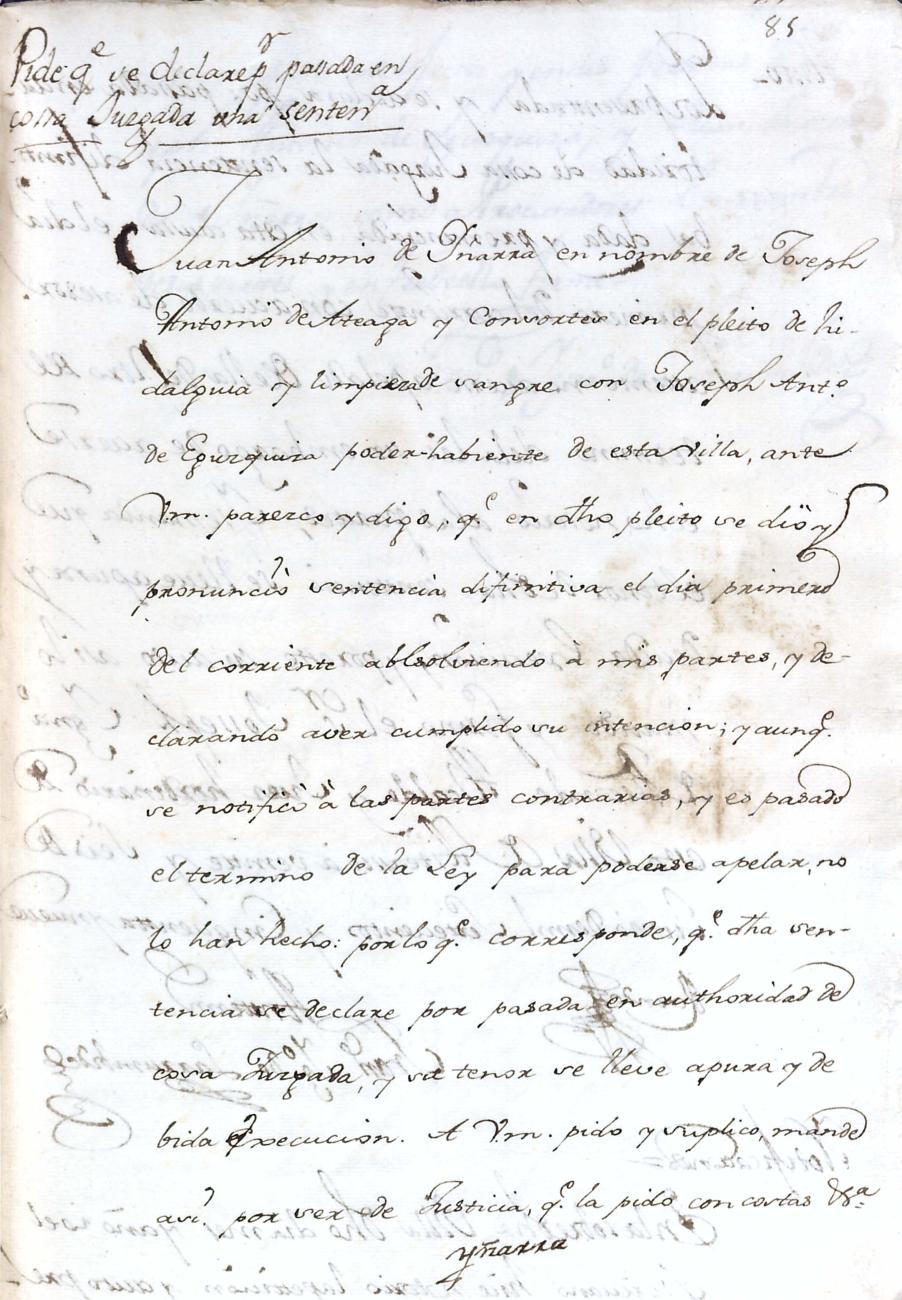 85
Pide qe. se declare pr. pasada en
cossa Juzgada dha sentena
Juan Antonio de Ynarra en nombre de Joseph
Antonio de Ateaga y Consortes en el pleito de hi-
dalguia y limpieza de sangre con Joseph Anto.
de Eguzquiza poder-habiente de esta Villa, ante
Vm. parezco y digo, qe. en dho pleito se dió y
pronunció sentencia difinitiva el dia primero
del corriente abbsolviendo à mis partes, y de-
clarando aver cumplido su intencion; y aunqe.
se notificò à las partes contrarias, y es pasado
el termino de la Ley para poderse apelar, no
lo han hecho: por lo qe. corresponde, qe. dha sen-
tencia se declare por pasada en authoridad de
cosa Juzgada, y su tenor se lleve apura y de
bida execucion. A Vm. pido y suplico, mande
asi. por ser de Justicia, qe. la pido con costas &a.
Yñarra